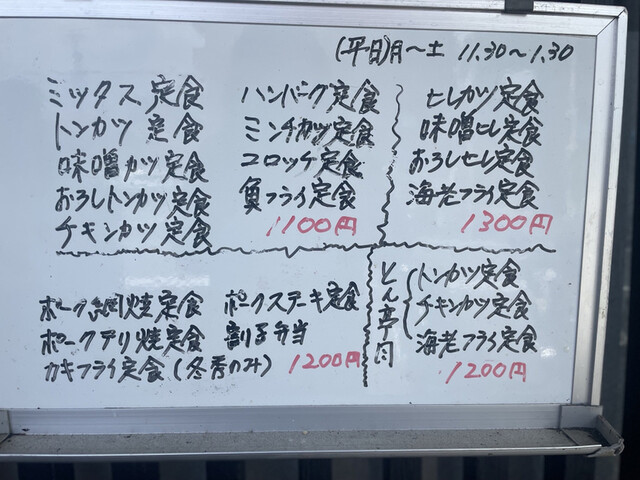 (平日)月～土 11.30～1.30
ミックス定食
トンカツ定食
味噌カツ定食
おろしトンカツ定食
チキンカツ定食
ハンバーグ定食
ミンチカツ定食
コロッケ定食
魚フライ定食
1100円
ヒレカツ定食
味噌ヒレ定食
おろしヒレ定食
海老フライ定食
1300円
ポーク網焼定食
ポークテリ焼定食
カキフライ定食(冬季のみ)
ポークステーキ定食
割子弁当
1200円
とん亭
トンカツ定食
チキンカツ定食
海老フライ定食
1200円